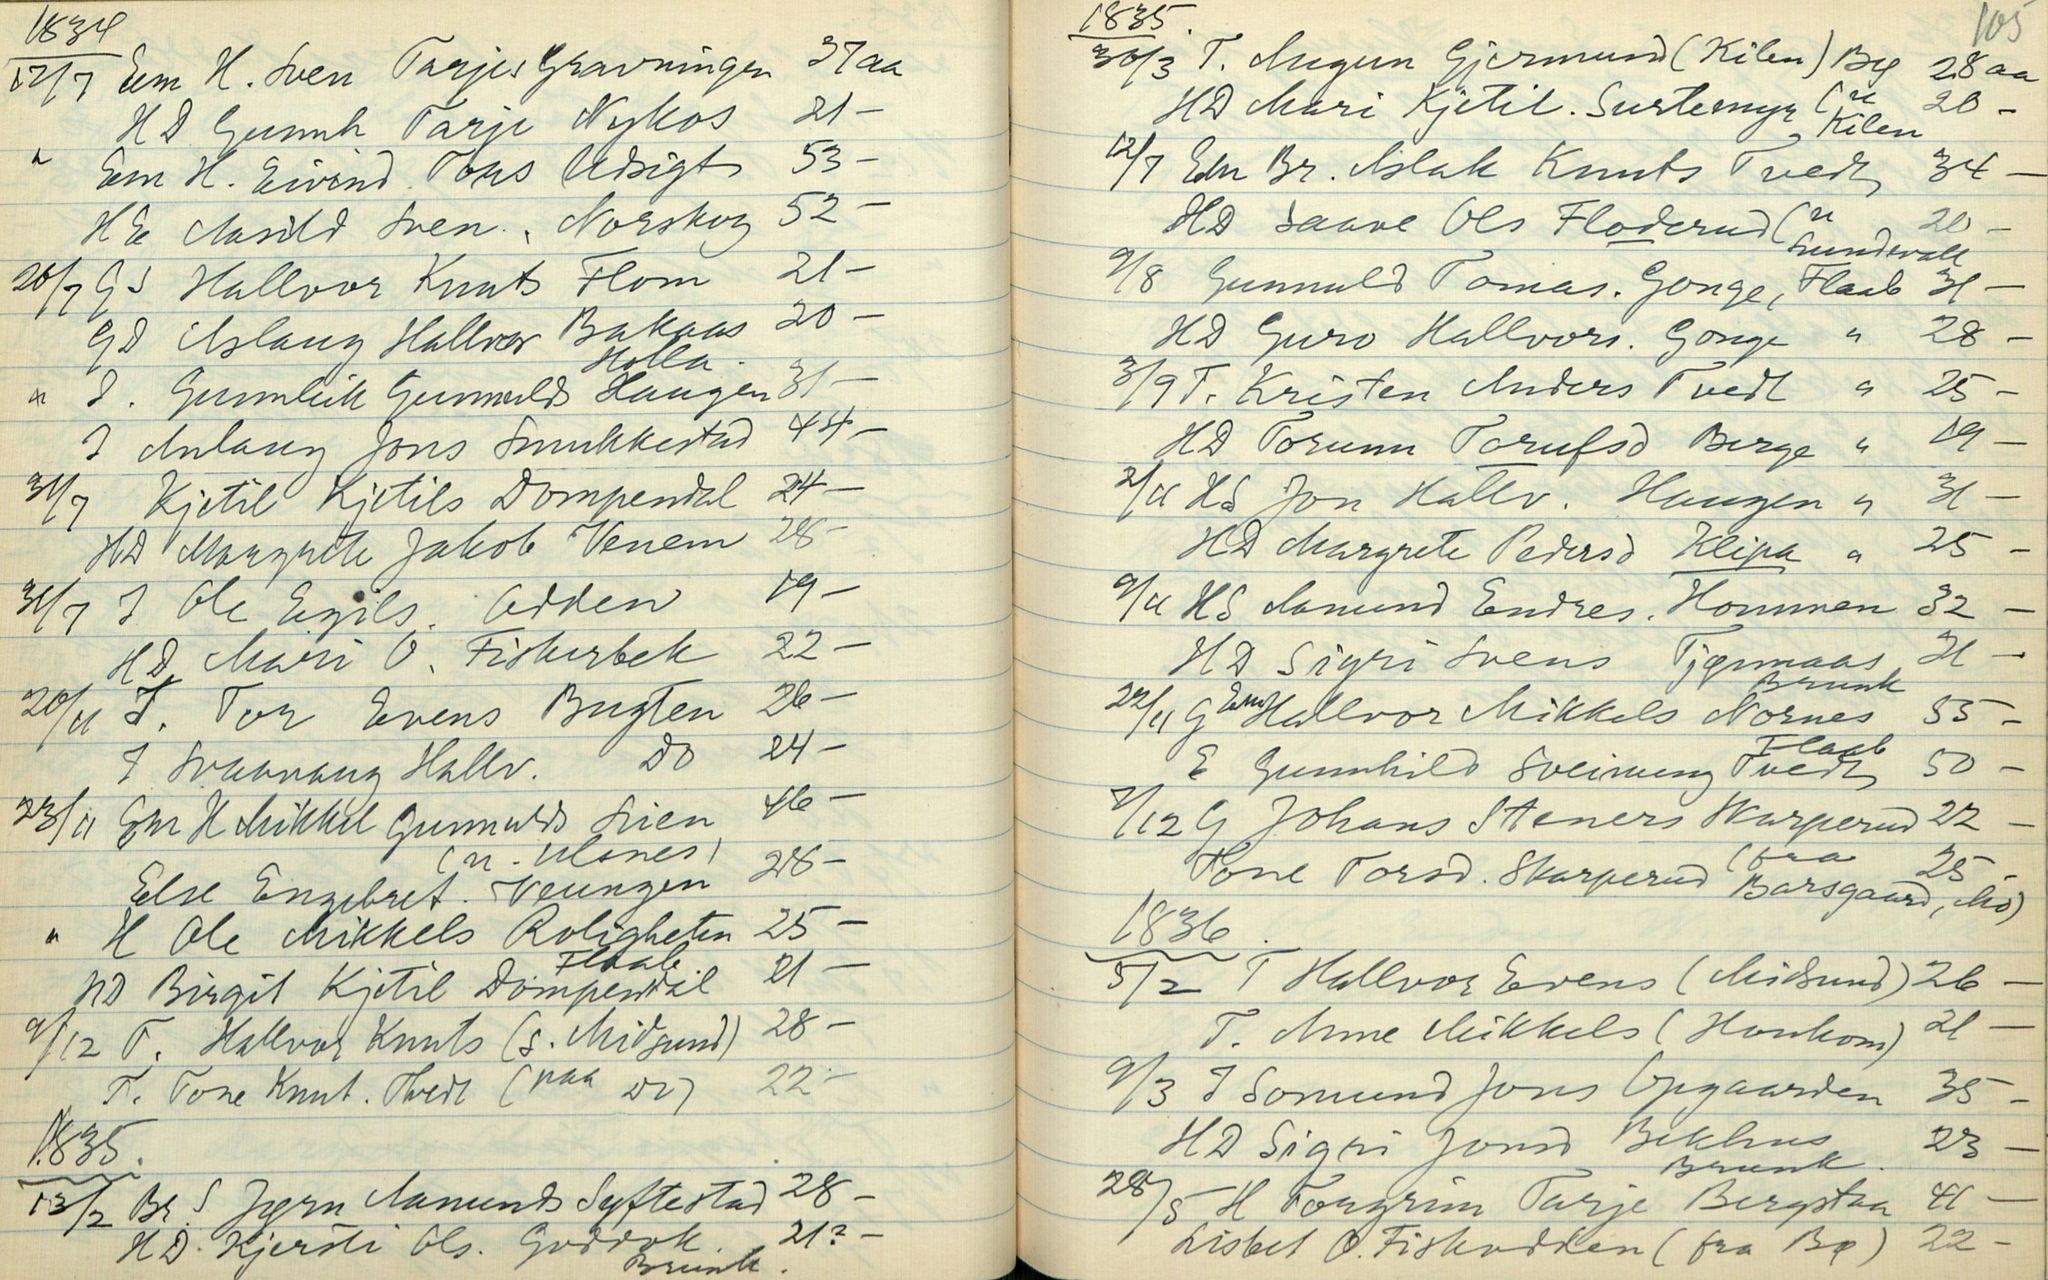 1834
12/7 Em H. Sven Tarjes Gravningen 37 aa
HD Gunnh Tarje Nykos 21 -
" Em H. Eivind Tons Udsigt 53 -
HE Aasild Sven. Norskog 52 -
20/7 GS Hallvor Knuts Flom 21 -
GD Aslaug Hallvor Bakaas 20 -
Holla.
" I. Gunnleik Gunnulds Haugen 31 -
I Anlaug Jons Smukkestad 44 -
31/7 Kjetil Kjetils Dompendal 24 -
HD Margrete Jakob Venem 28 -
31/7 I Ole Egils. Odden 19 -
HD Mari O. Fiskerbek 22 -
20/11 I. Tor Evens Bugten 26 -
I Svaanaug Hallv. Do 24 -
23/11 Em H Mikkel Gunnulds Lien 46 -
(n. Ulsnes)
Else Engebret. Veungen 28 -
" H Ole Mikkels Roligheten 25 -
Flaab
HD Birgit Kjetil Dompendal 21 -
9/12 T. Hallvor Knuts (s. Midsund) 28 -
T. Tone Knut. Tvedt (paa Do) 22 -
1835.
13/2 Br. S Jørn Aamunds Syftestad 28 -
HD. Kjersti Ols. Goddok. 21? -
Brunk.
105
1835.
30/3 T. Augun Gjermund (Kilen) Bø 28 aa
HD Mari Kjetil. Surtemyr (n 20 -
Kilen
12/7 Em Br. Aslak Knuts Tvedt, 34 -
HD Saave Ols Floderud (n 20 -
Sundvall
9/8 Gunnuld Tomas. Gonge, Flaab 31 -
HD Guro Hallvors. Gonge " 28 -
3/9 T. Kristen Anders Tvedt " 25 -
HD Torunn Torufsd Berge " 19 -
2/11 HS Jon Hallv. Haugen " 31 -
HD Margrete Pedersd Klipa " 25 -
9/11 HS Aamund Endres. Hommen 32 -
HD Sigri Svens Tjønnaas 21 -
Brunk
22/11 G Em Hallvor Mikkels Nornes 55 -
Flaab
E Gunnhild Sveinung Tvedt, 50 -
2/12 G Johans Steners Skarperud 22 -
Tone Torsd. Skarperud (fra 25 -
Barsgaard, Mo)
1836.
5/2 T Hallvor Evens (Midsund) 26 -
T. Anne Mikkels (Honkom) 21 -
9/3 I Somund Jons Opgaarden 35 -
HD Sigri Jonsd Bekhus 23 -
Brunk.
28/5 H Torgrim Tarje Bergstaa 41 -
Lisbet O. Fiskodden (fra Bø) 22 -